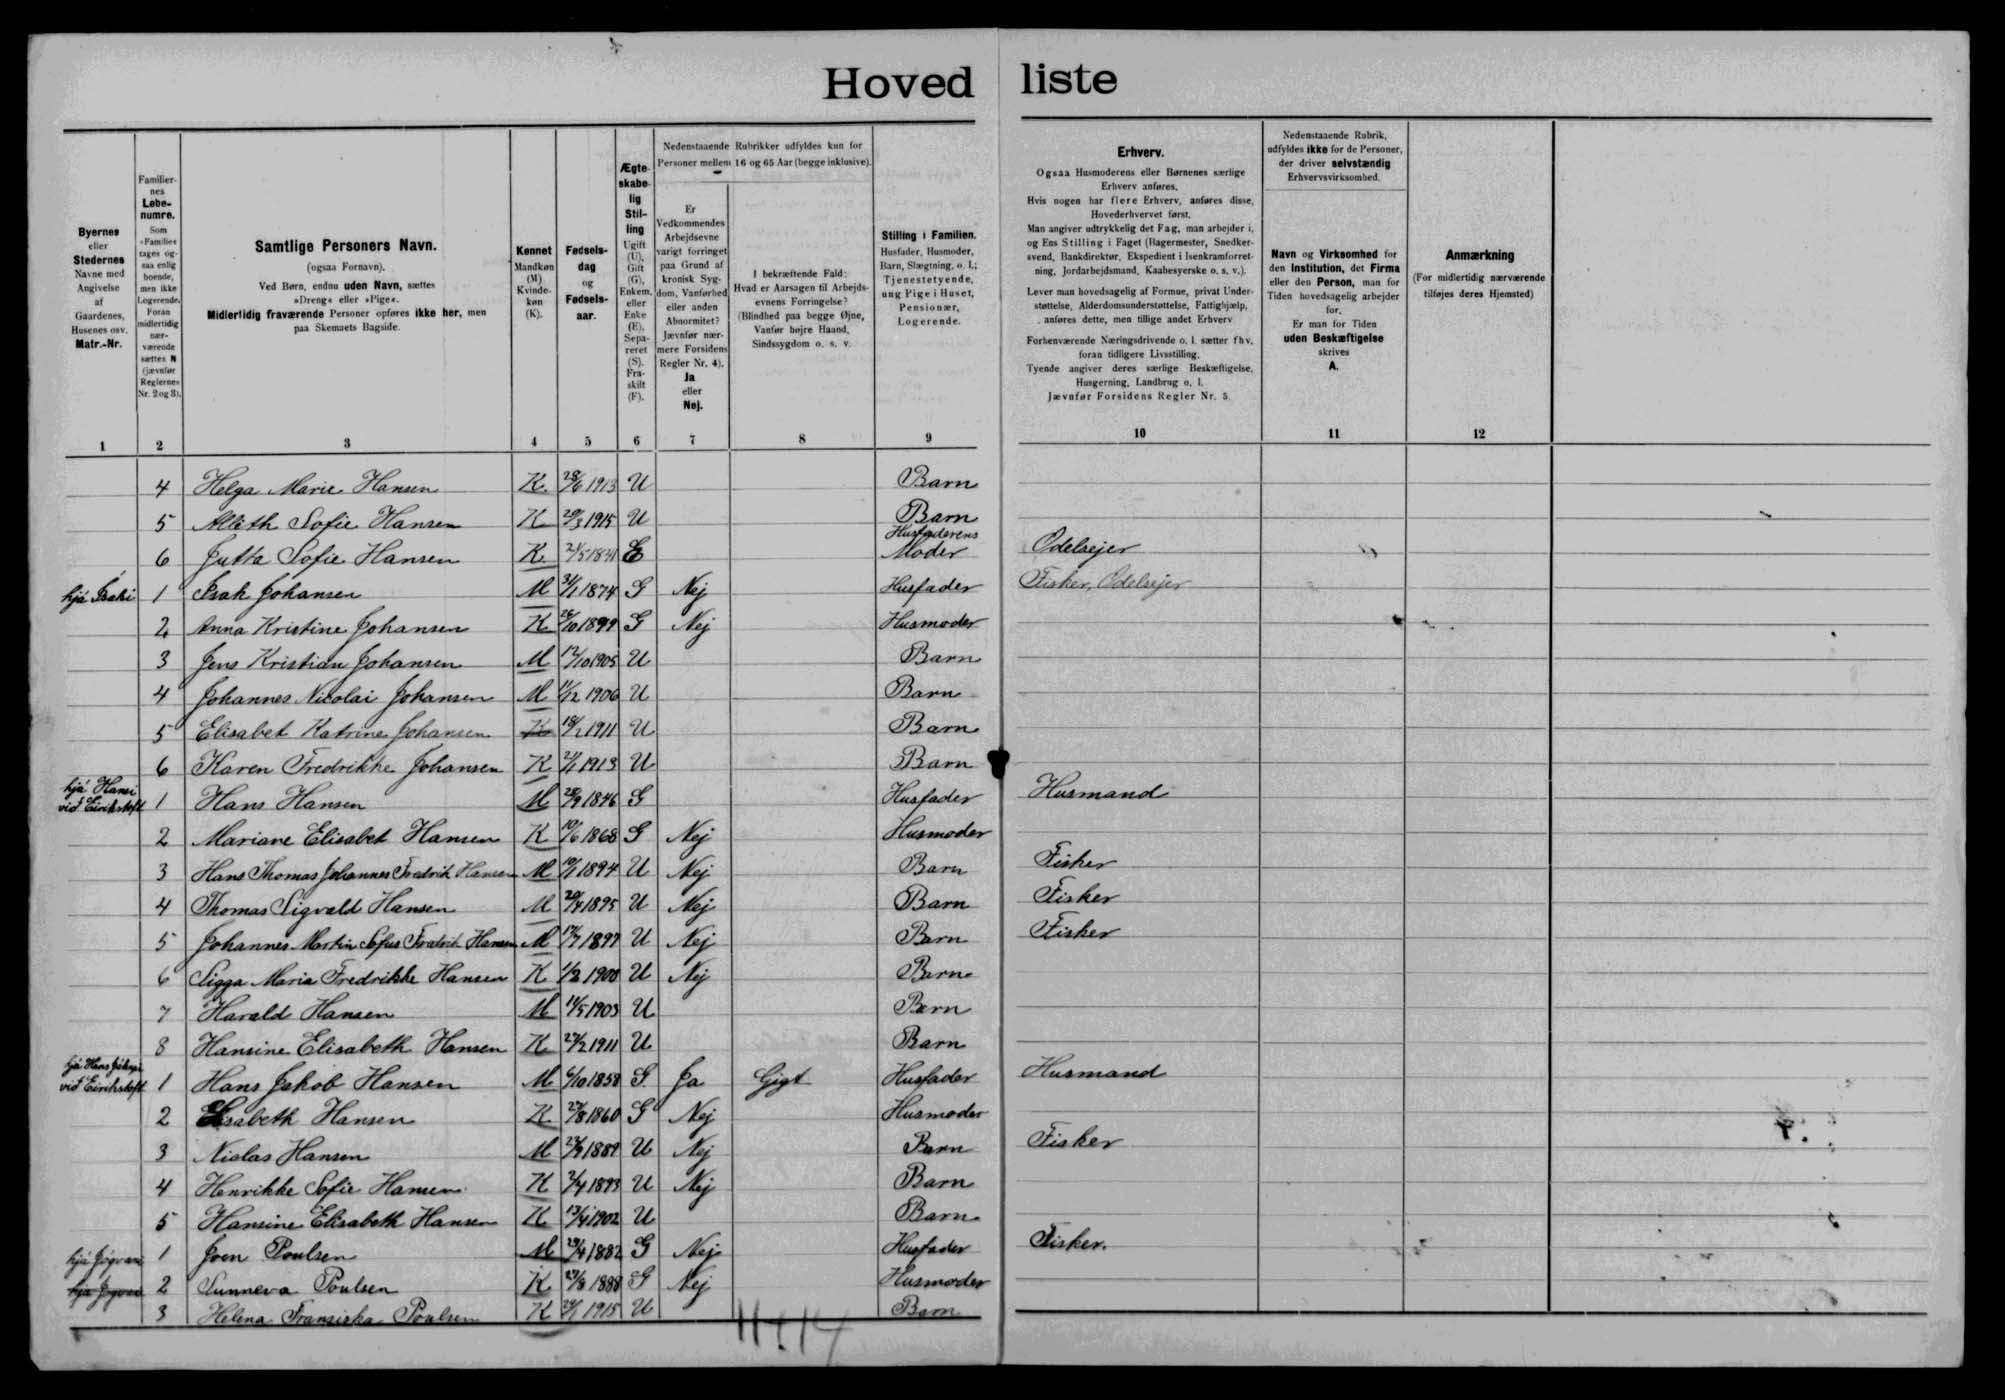 Hoved liste
Byernes eller Stedernes Navne med Angivelse af Gaardenes, Husenes osv. Matr.-Nr.
Familiernes Løbenumre. Som »Familie« tages ogsaa enlig boende, men ikke Logerende. Foran midlertidig nærværende sættes N (jævnfør Reglernes Nr. 2 og 3).
Samtlige Personers Navn. (ogsaa Fornavn). Ved Børn, endnu uden Navn, sættes »Dreng« eller »Pige«. Midlertidig fraværende Personer opføres ikke her, men paa Skemaets Bagside.
Kønnet Mandkøn (M) Kvindekøn (K).
Fødselsdag og Fødselsaar.
Ægteskabelig Stilling Ugift (U), Gift (G), Enkem. eller Enke (E), Separeret (S). Fraskilt (F).
Nedenstaaende Rubrikker udfyldes kun for Personer mellem 16 og 65 Aar (begge inklusive).
Er Vedkommendes Arbejdsevne varigt forringet paa Grund af kronisk Sygdom, Vanførhed eller anden Abnormitet? Jævnfør nærmere Forsidens Regler Nr. 4). Ja eller Nej.
I bekræftende Fald: Hvad er Aarsagen til Arbejdsevnens Forringelse? (Blindhed paa begge Øjne, Vanfør højre Haand, Sindssygdom o. s. v.
Stilling i Familien. Husfader, Husmoder, Barn, Slægtning, o. l.; Tjenestetyende, ung Pige i Huset, Pensionær, Logerende.
Erhverv.
Ogsaa Husmoderens eller Børnenes særlige Erhverv anføres.
Hvis nogen har flere Erhverv, anføres disse, Hovederhvervet først.
Man angiver udtrykkelig det Fag, man arbejder i, og Ens Stilling i Faget (Bagermester, Snedkersvend, Bankdirektør, Ekspedient i Isenkramforretning, Jordarbejdsmand, Kaabesyerske o. s. v.).
Lever man hovedsagelig af Formue, privat Understøttelse, Alderdomsunderstøttelse, Fattighjælp, anføres dette, men tillige andet Erhverv
Forhenværende Næringsdrivende o. l. sætter fhv. foran tidligere Livsstilling.
Tyende angiver deres særlige Beskæftigelse, Husgerning, Landbrug o. l.
Jævnfør Forsidens Regler Nr. 5.
Nedenstaaende Rubrik, udfyldes ikke for de Personer, der driver selvstændig Erhvervsvirksomhed.
Navn og Virksomhed for den Institution, det Firma eller den Person, man for Tiden hovedsagelig arbejder for.
Er man for Tiden uden Beskæftigelse skrives A.
Anmærkning
(For midlertidig nærværende tilføjes deres Hjemsted)
1 2 3 4 5 6 7 8 9 10 11 12
4 Helga Marie Hansen K. 28/6 1913 U Barn
5 Sofie Hansen K 29/3 1915 U Barn
6 Jutta Sofie Hansen K. 2/5 1841 E Husfaderens Moder Odelsejer
hjá Ísaki 1 Isak Johansen M 31/1 1874 G Nej Husfader Fisker, Odelsejer
2 Anna Kristine Johansen K 26/10 1879 G Nej Husmoder
3 Jens Kristian Johansen M 12/10 1905 U Barn
4 Johannes Nicolai Johansen M 11/12 1906 U Barn
5 Elisabet Katrine Johansen K 18/2 1911 U Barn
6 Karen Fredrikke Johansen K 21/1 1913 U Barn
hjá Hansi við Eirikstoft 1 Hans Hansen M 28/9 1846 G Husfader Husmand
2 Mariane Elisabet Hansen K 10/6 1868 G Nej Husmoder
3 Hans Thomas Johannes Fredrik Hansen M 10/1 1894 U Nej Barn Fisker
4 Thomas Sigvald Hansen M 20/4 1895 U Nej Barn Fisker
5 Johannes Martin Sofus Fredrik Hansen M 17/7 1897 U Nej Barn Fisker
6 Sigga Maria Fredrikke Hansen K 1/2 1900 U Nej Barn
7 Harald Hansen M 14/5 1903 U Barn
8 Hansine Elisabeth Hansen K 27/2 1911 U Barn
hjá Hans við Eirikstoft 1 Hans Jakob Hansen M 6/10 1858 G Ja Gigt Husfader Husmand
2 Elisabeth Hansen K. 27/8 1860 G Nej Husmoder
3 Niclas Hansen M 23/9 1889 U Nej Barn Fisker
4 Henrikke Sofie Hansen K 2/4 1893 U Nej Barn
5 Hansine Elisabeth Hansen K 13/4 1902 U Barn
hjá Jógvani 1 Joen Poulsen M 29/4 1882 G Nej Husfader Fisker.
hjá Jógvani 2 Sunneva Poulsen K 27/8 1888 G Nej Husmoder
3 Helena Fransiska Poulsen K 24/1 1915 U Barn
11+14